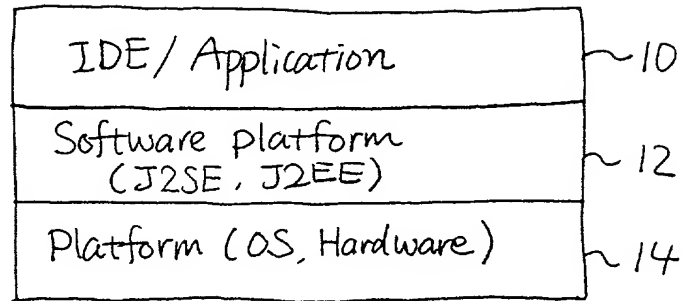 IDE/ Application
10
Software platform
(J2SE, J2EE)
12
Platform (OS, Hardware)
14